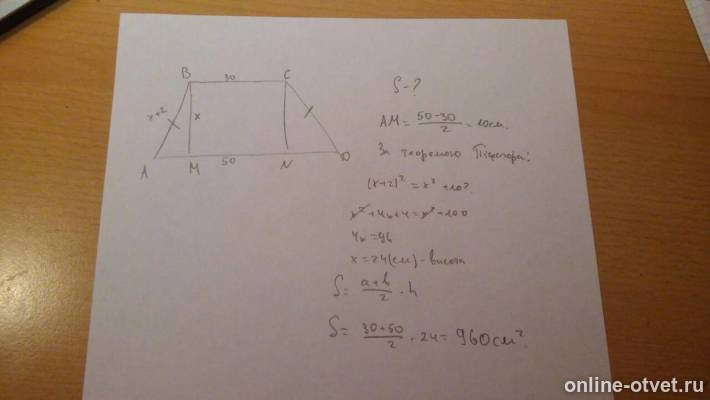 B 30 C
x+2
x
A M 50 N D
S-?
AM = (50-30)/2 = 10см.
За теоремою Піфагора:
(x+2)² = x² +10².
x²+4x+4=x²+100
4x=96
x=24(см)-висота
S = (a+b)/2 · h
S = (30+50)/2 · 24 = 960см².
online-otvet.ru